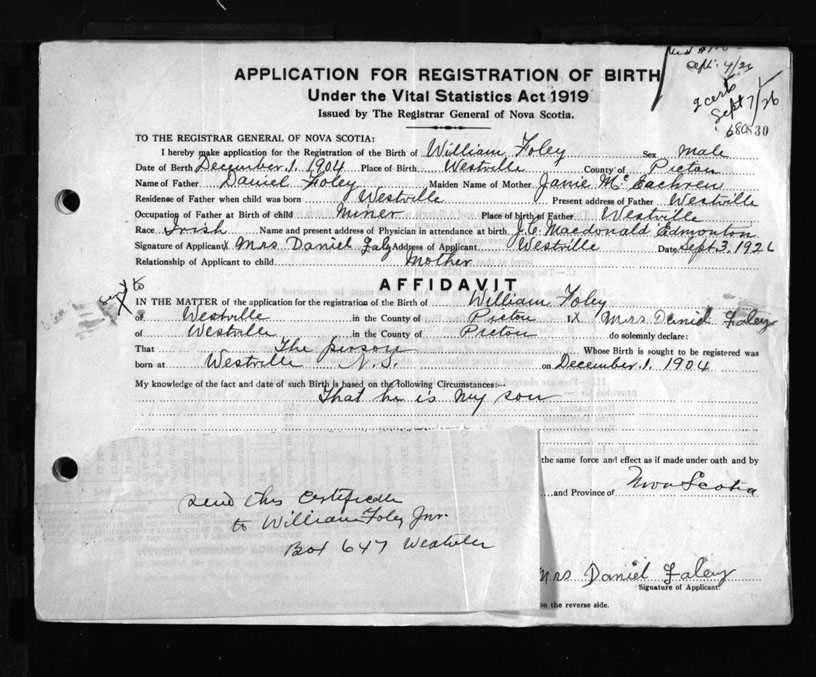 Sept. 4/26
2 certs
Sept 7/26
68030
APPLICATION FOR REGISTRATION OF BIRTH
Under the Vital Statistics Act 1919
Issued by The Registrar General of Nova Scotia.
TO THE REGISTRAR GENERAL OF NOVA SCOTIA:
I hereby make application for the Registration of the Birth of William Foley Sex male
Date of Birth December 1, 1904 Place of Birth Westville County of Pictou
Name of Father Daniel Foley Maiden Name of Mother Janie McEachren
Residense of Father when child was born Westville Present address of Father Westville
Occupation of Father at Birth of child miner Place of birth of Father Westville
Race Irish Name and present address of Physician in attendance at birth J.C. Macdonald Edmonton
Signature of Applicant X Mrs Daniel Faley Address of Applicant Westville Date Sept. 3, 1926
Relationship of Applicant to child Mother
AFFIDAVIT
IN THE MATTER of the application for the registration of the Birth of William Foley
of Westville in the County of Pictou I, X Mrs Daniel Faley
of Westville in the County of Pictou do solemnly declare:
That The person Whose Birth is sought to be registered was
born at Westville N.S. on December 1, 1904
My knowledge of the fact and date of such Birth is based on the following Circumstances:--
That he is my son
the same force and effect as if made under oath and by
and Province of Nova Scotia
Send this Certificate
to William Foley Jnr.
Box 647 Westville
Mrs Daniel Faley
Signature of Applicant.
on the reverse side.